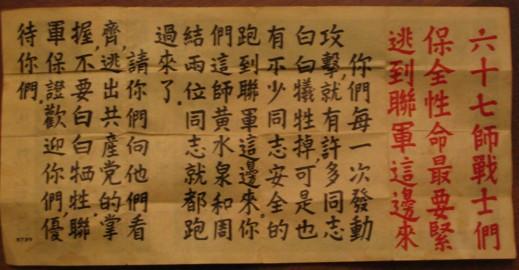 六十七師戰士們
保全性命最要緊
逃到聯軍這邊來
你們每一次發動
攻擊,就有許多同志
白白犧牲掉,可是也
有不少同志安全的
跑到聯軍這邊來。你
們這師黃水泉和周
結兩位同志就都跑
過來了。
請你們向他們看
齊,逃出共產党的掌
握,不要白白牺牲,聯
軍保證歡迎你們,優
待你們。